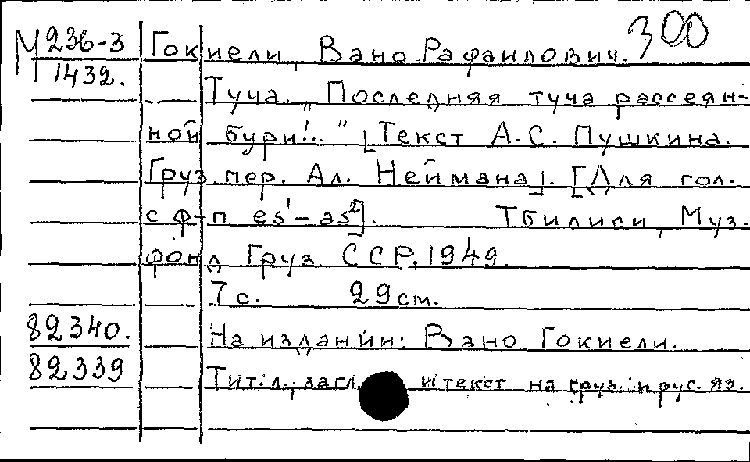 М 236-3
1432.
300
Гокиели, Вано Рафаилович.
Туча. „Последняя туча рассеян-
ной бури!.." [Текст А.С. Пушкина.
Груз. пер. Ал. Неймана]. [Для гол.
с ф-п es¹-as²]. Тбилиси, Муз-
фонд Груз ССР, 1949.
7 с. 29 см.
82340. На издании: Вано Гокиели.
82339 Тит. л., загл. и текст на груз. и рус. яз.